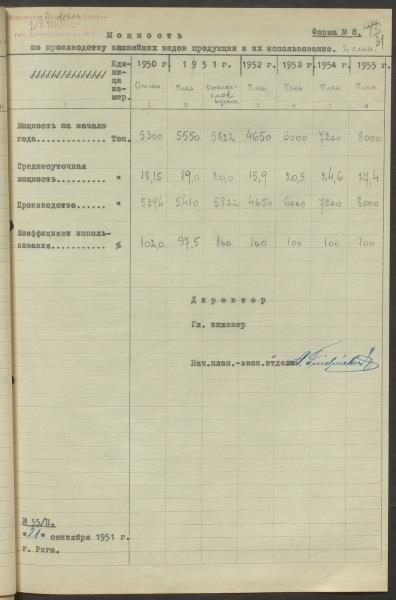 Форма № 8.
Мощность
по производству важнейших видов продукции и их использование. 2 смен.
Еди-
ни-
ца
из-
мер.
1950 г 1951 г. 1952 г 1953 г 1954 г 1955 г.
Отчет. План План План План План
1 2 3 4 5 6 7 8
Мощность на начало
года.............. Тон. 5300 5550 5822 4650 6000 7200 8000
Среднесуточная
мощность.......... " 18,15 19,0 20,0 15,9 20,5 24,6 27,4
Производство...... " 5394 5410 5822 4650 6000 7200 8000
Коэффициент исполь-
зования........... % 102,0 97,5 100 100 100 100 100
Директор
Гл. инженер
Нач.план.-экон.отдела
№ 55/П.
"21" сентября 1951 г.
г. Рига.